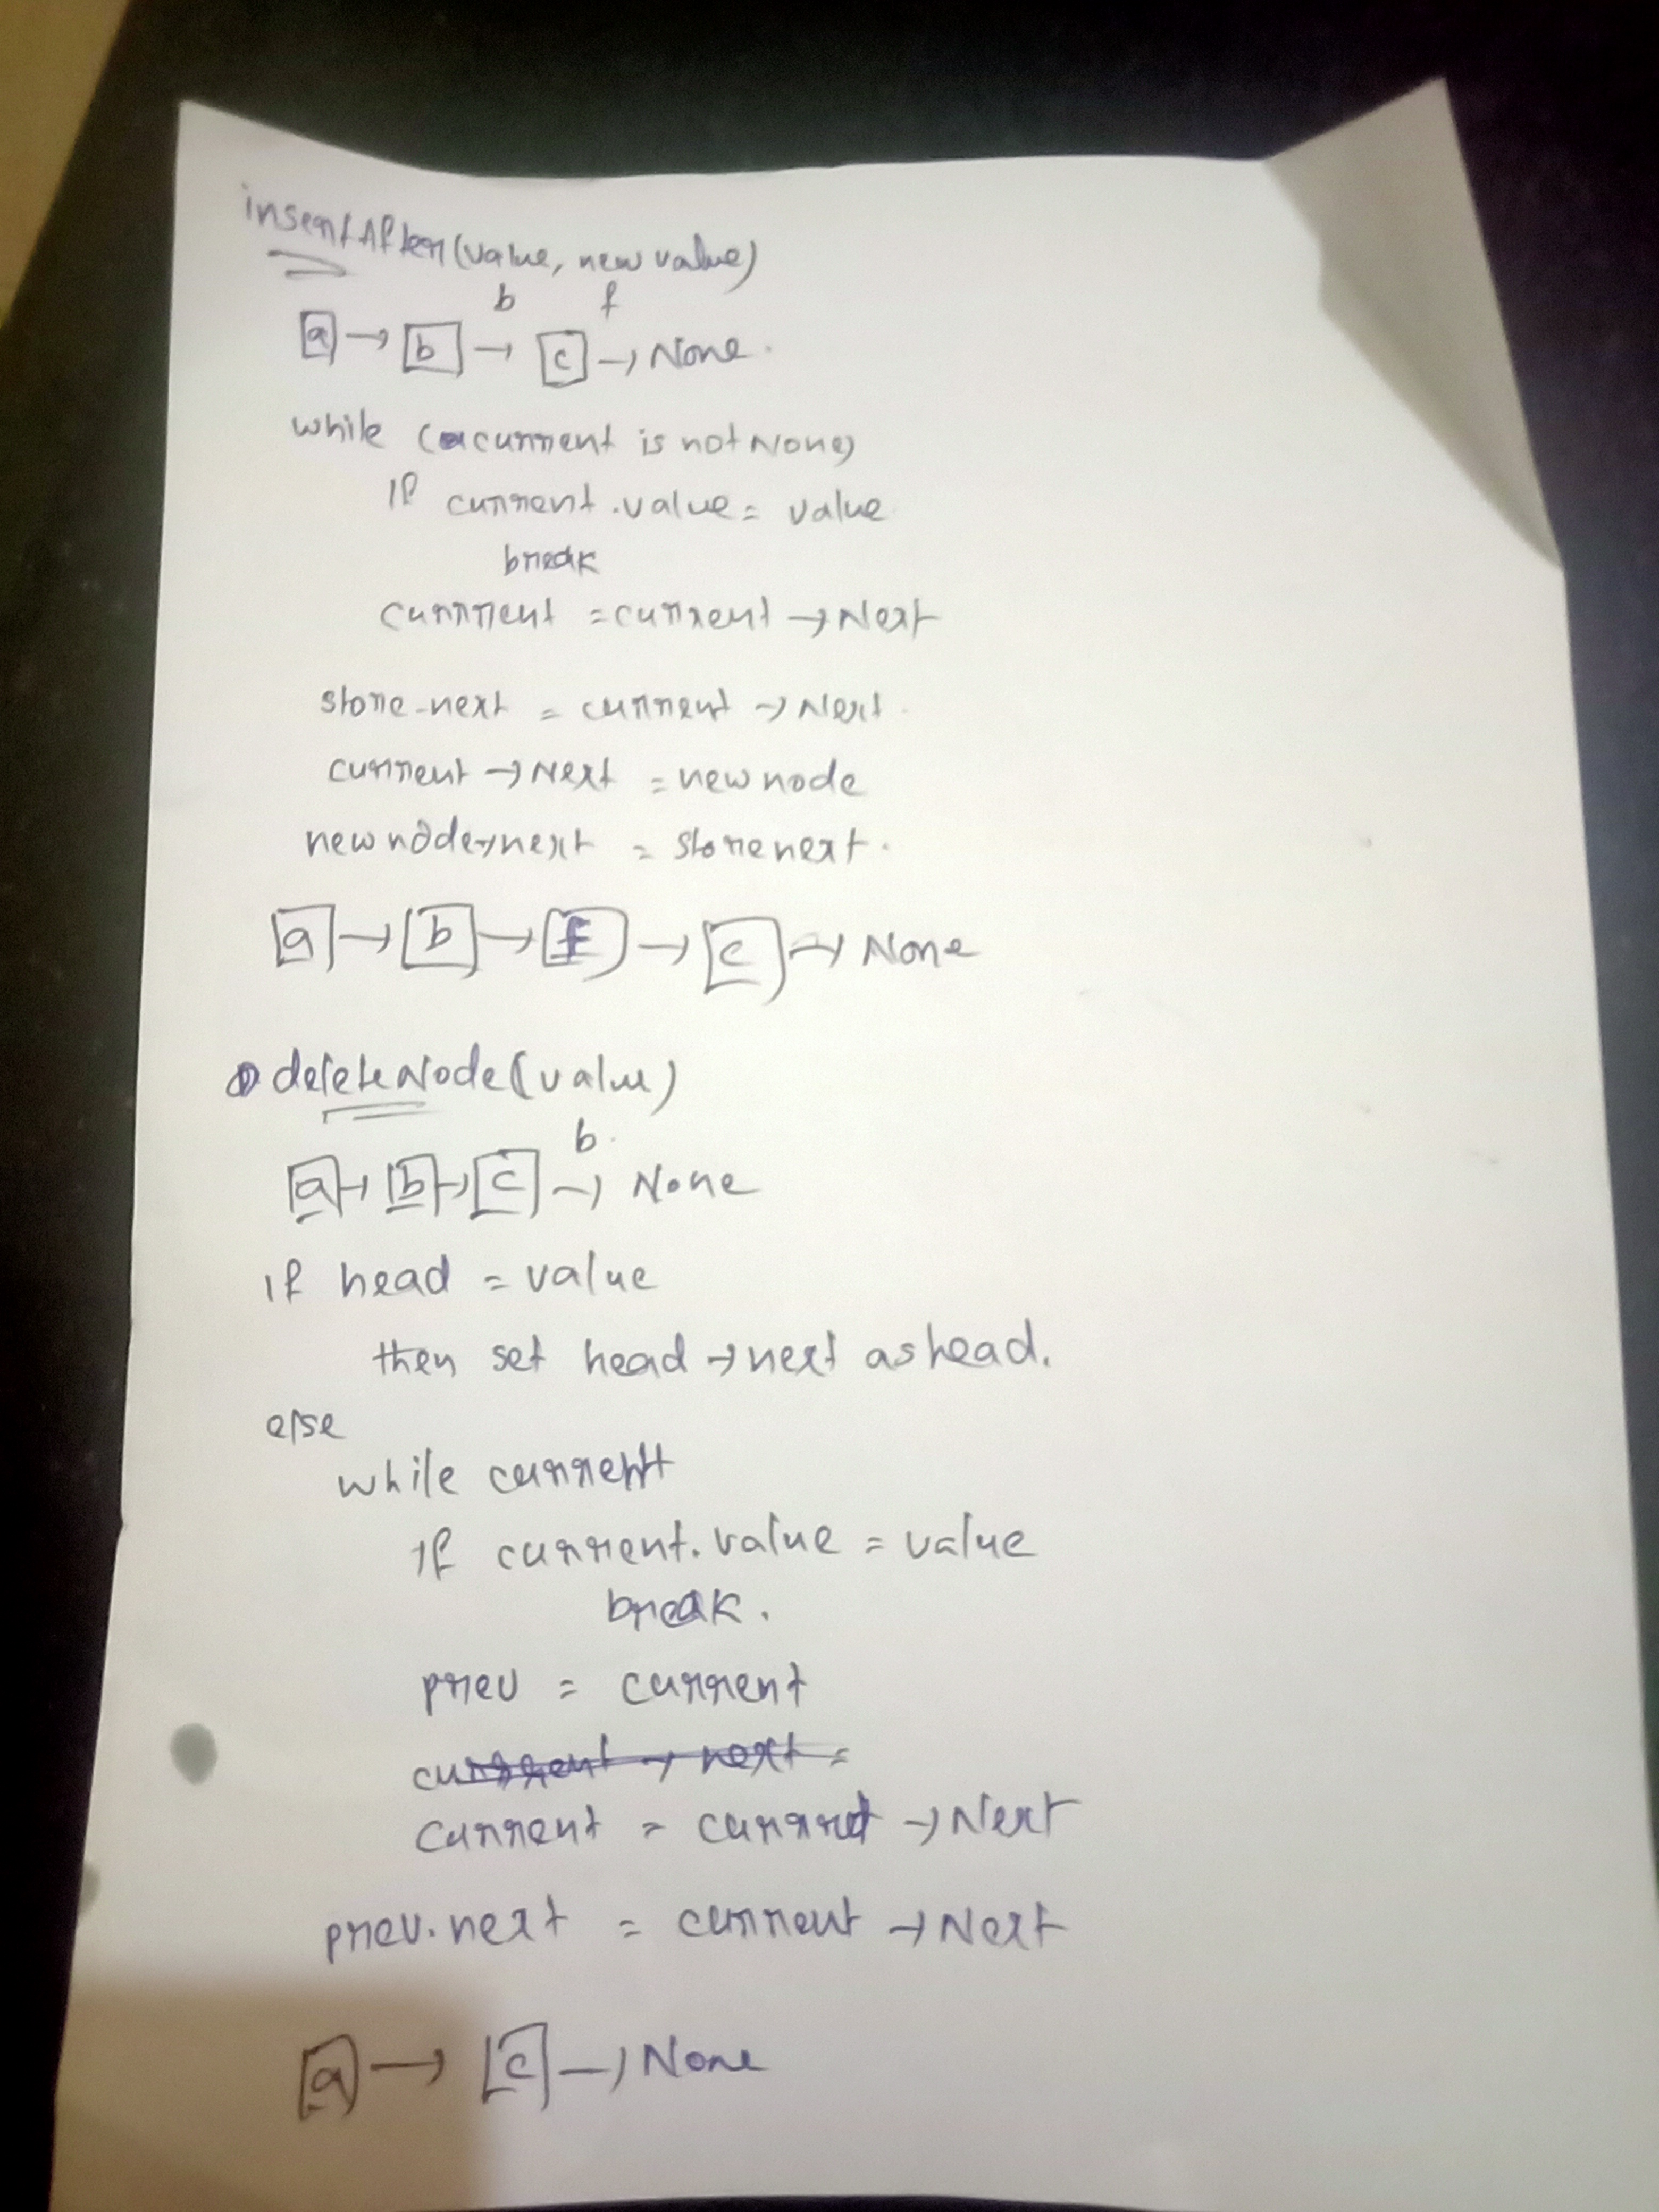 insertAfter(value, new value)
b f
a → b → c → None.
while (current is not None)
If current.value = value
break
current = current → Next
store-next = current → Next.
current → Next = new node
new node → next = store next.
a → b → f → c → None
deleteNode(value)
b.
a → b → c → None
if head = value
then set head → next as head.
else
while current
If current.value = value
break.
prev = current
current → next =
current = current → Next
prev.next = current → Next
a → c → None